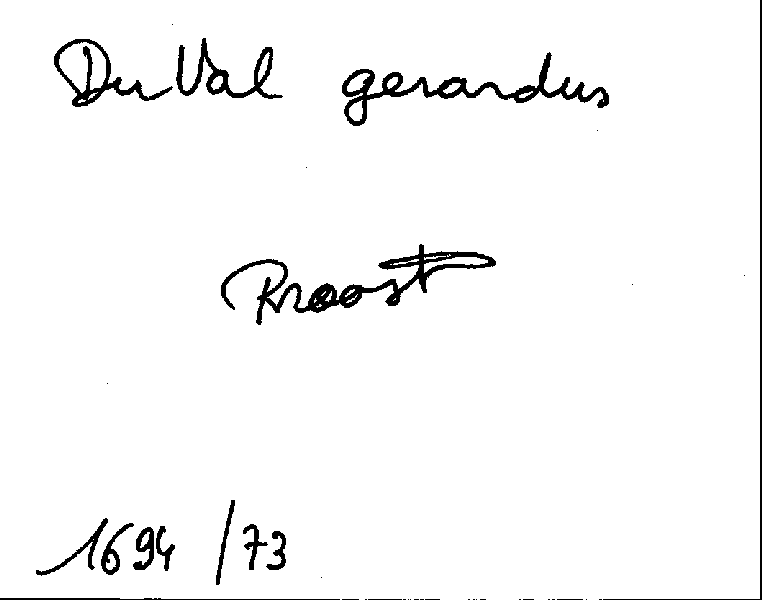 DuVal gerardus
Proost
1694 /73